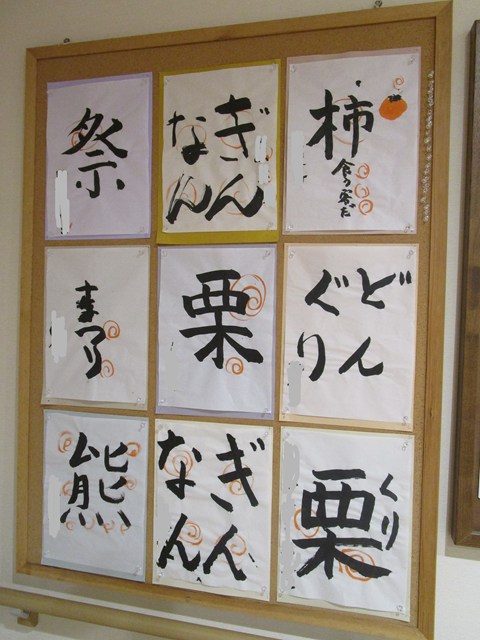 柿
食う客だ
ぎん
なん
祭
どん
ぐり
栗
まつり
くり
栗
ぎん
なん
熊